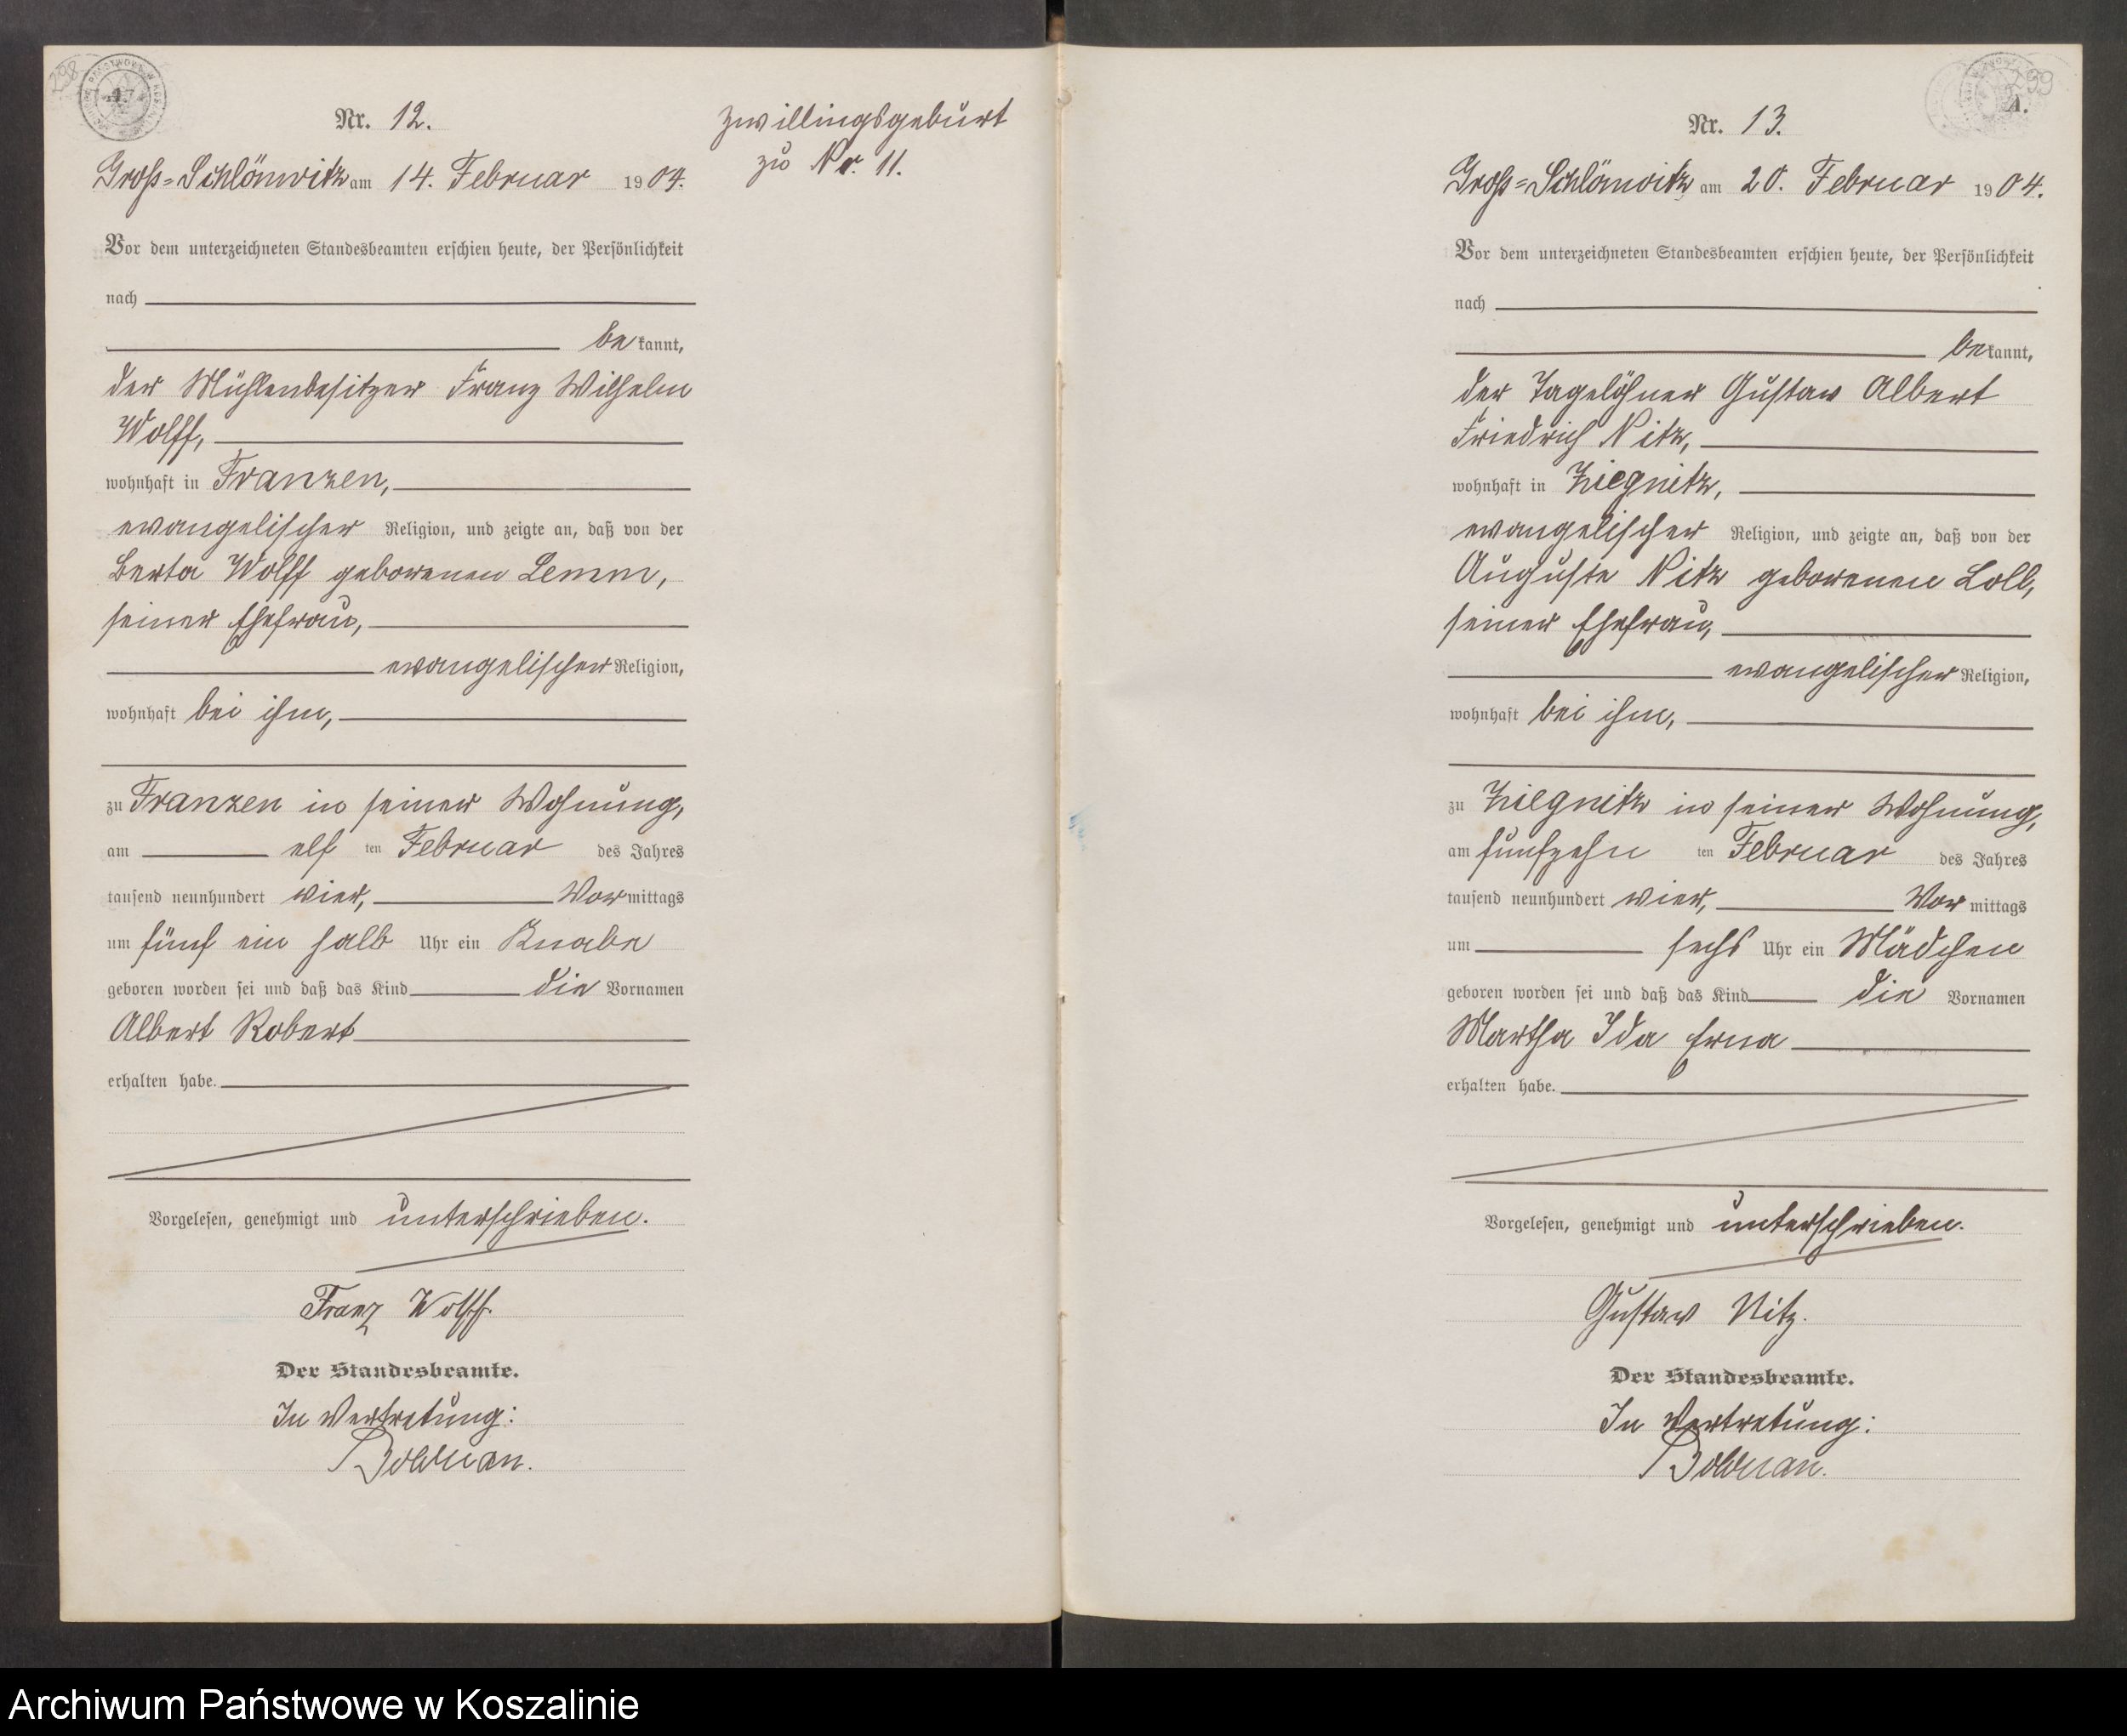 298
Nr. 12.
Groß-Schlönwitz am 14. Februar 1904.
Vor dem unterzeichneten Standesbeamten erschien heute, der Persönlichkeit
nach
bekannt,
der Mühlenbesitzer Franz Wilhelm
Wolff,
wohnhaft in Franzen,
evangelischer Religion, und zeigte an, daß von der
Berta Wolff geborenen Lemm,
seiner Ehefrau,
evangelischer Religion,
wohnhaft bei ihm,
zu Franzen in seiner Wohnung,
am elf ten Februar des Jahres
tausend neunhundert vier, Vormittags
um fünf ein halb Uhr ein Knabe
geboren worden sei und daß das Kind die Vornamen
Albert Robert
erhalten habe.
Vorgelesen, genehmigt und unterschrieben.
Franz Wolff.
Der Standesbeamte.
In Vertretung:
Bolduan.
Zwillingsgeburt
zu Nr. 11.
299
Nr. 13.
Groß-Schlönwitz am 20. Februar 1904.
Vor dem unterzeichneten Standesbeamten erschien heute, der Persönlichkeit
nach
bekannt,
der Tagelöhner Gustav Albert
Friedrich Nitz,
wohnhaft in Ziegnitz,
evangelischer Religion, und zeigte an, daß von der
Auguste Nitz geborenen Loll,
seiner Ehefrau,
evangelischer Religion,
wohnhaft bei ihm,
zu Ziegnitz in seiner Wohnung,
am fünfzehn ten Februar des Jahres
tausend neunhundert vier, Vormittags
um sechs Uhr ein Mädchen
geboren worden sei und daß das Kind die Vornamen
Martha Ida Erna
erhalten habe.
Vorgelesen, genehmigt und unterschrieben.
Gustav Nitz.
Der Standesbeamte.
In Vertretung:
Bolduan.
Archiwum Państwowe w Koszalinie